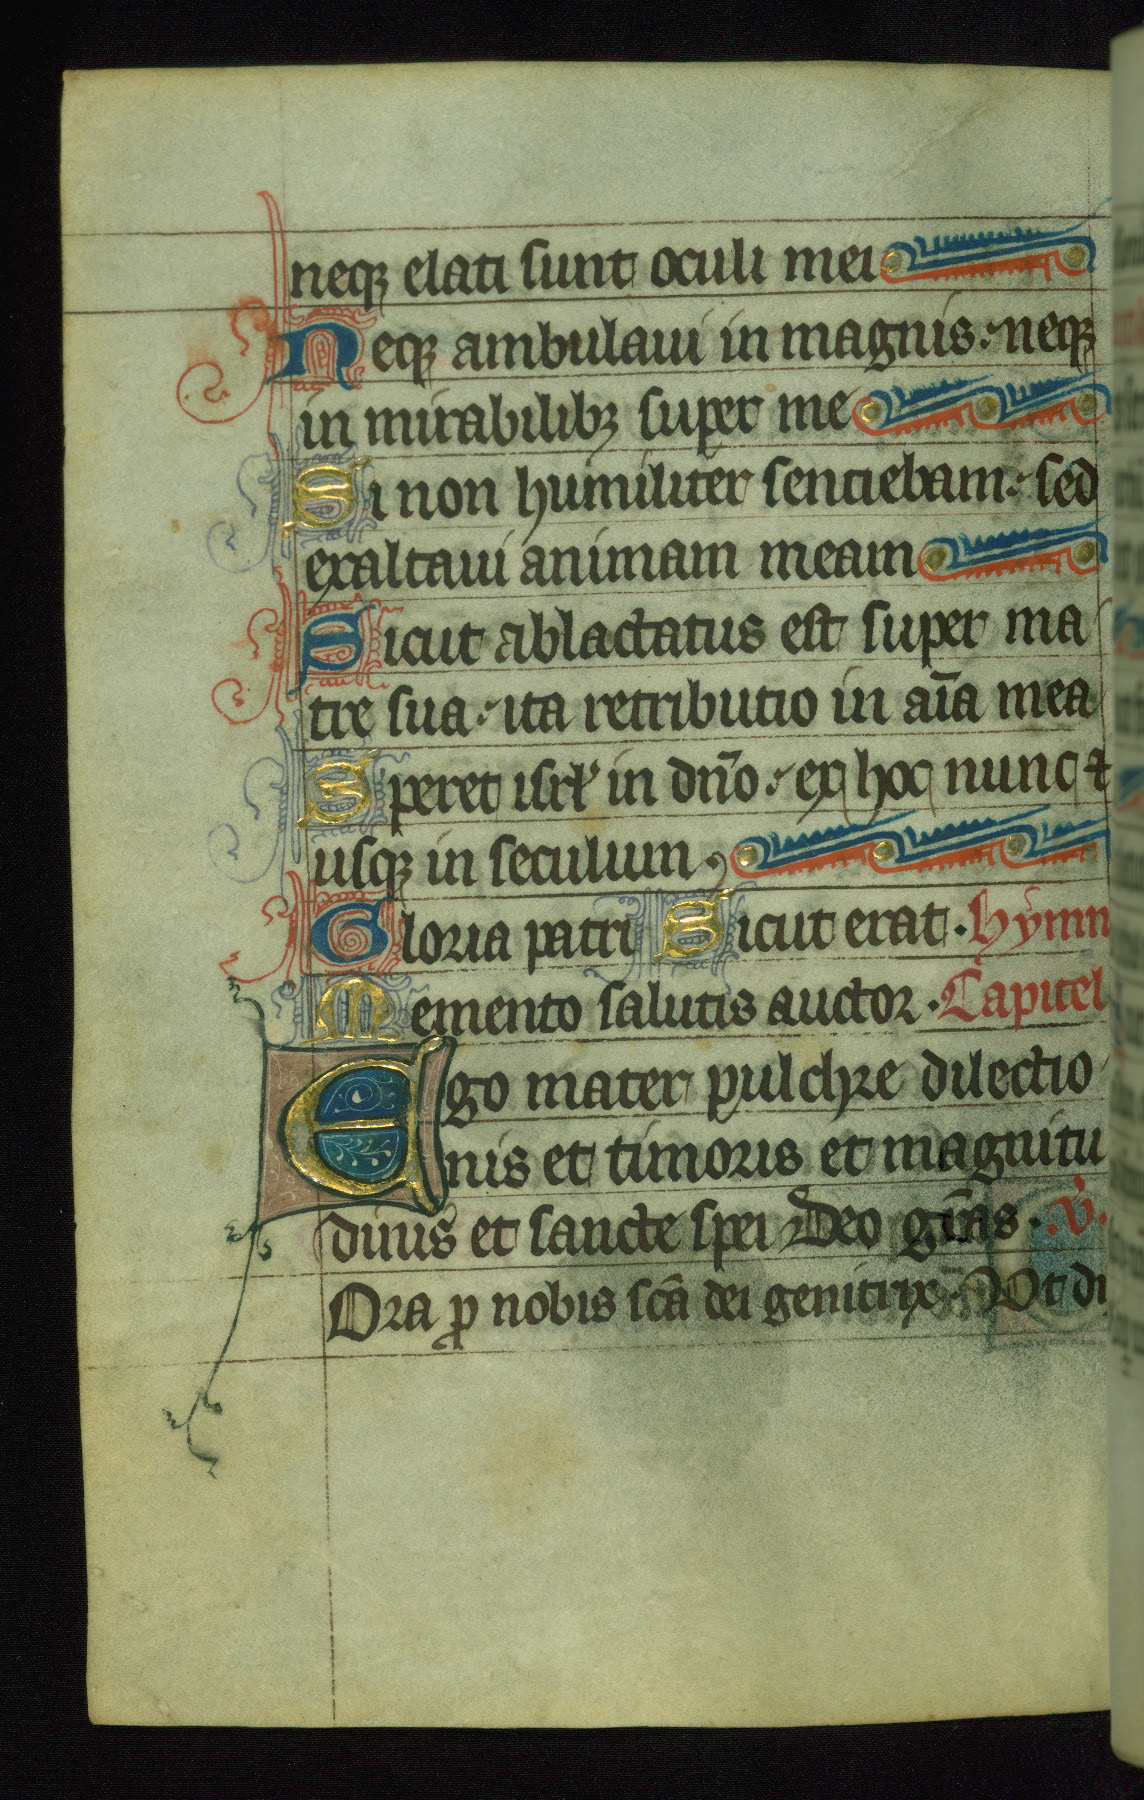 neqꝫ elati sunt oculi mei
Neqꝫ ambulaui in magnis : neqꝫ
in mirabilibꝫ super me
Si non humiliter sentiebam : sed
exaltaui animam meam
Sicut ablactatus est super ma
tre sua : ita retributio in aīa mea
Speret isrł in dño : ex hoc nunc ⁊
usqꝫ in seculum .
Gloria patri Sicut erat · Hÿmn
Memento salutis auctor · Capitel
Ego mater pulchre dilectio
nis et timoris et magnitu
dinis et sancte spei Deo gr̄as · v̇.
Ora ꝓ nobis sc̄a dei genitrix · Vt di